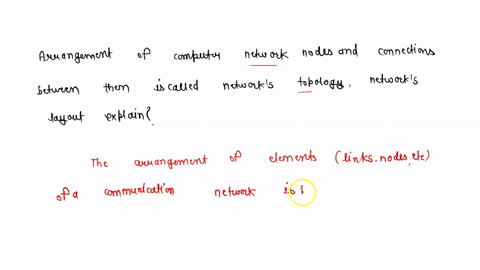 Arrangement of computer network nodes and connections
between them is called network's topology, network's
layout explain?
The arrangement of elements (links, nodes, etc)
of a communication network is